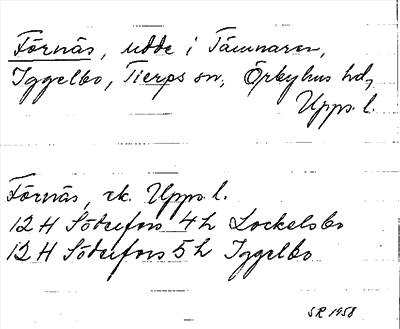 Förnäs, udde i Tämnaren,
Iggelbo, Tierps sn, Örbyhus hd,
Upps. l.
Förnäs, rk. Upps. l.
12 H Söderfors 4 h Lockelsbo
12 H Söderfors 5 h Iggelbo
SR 1958